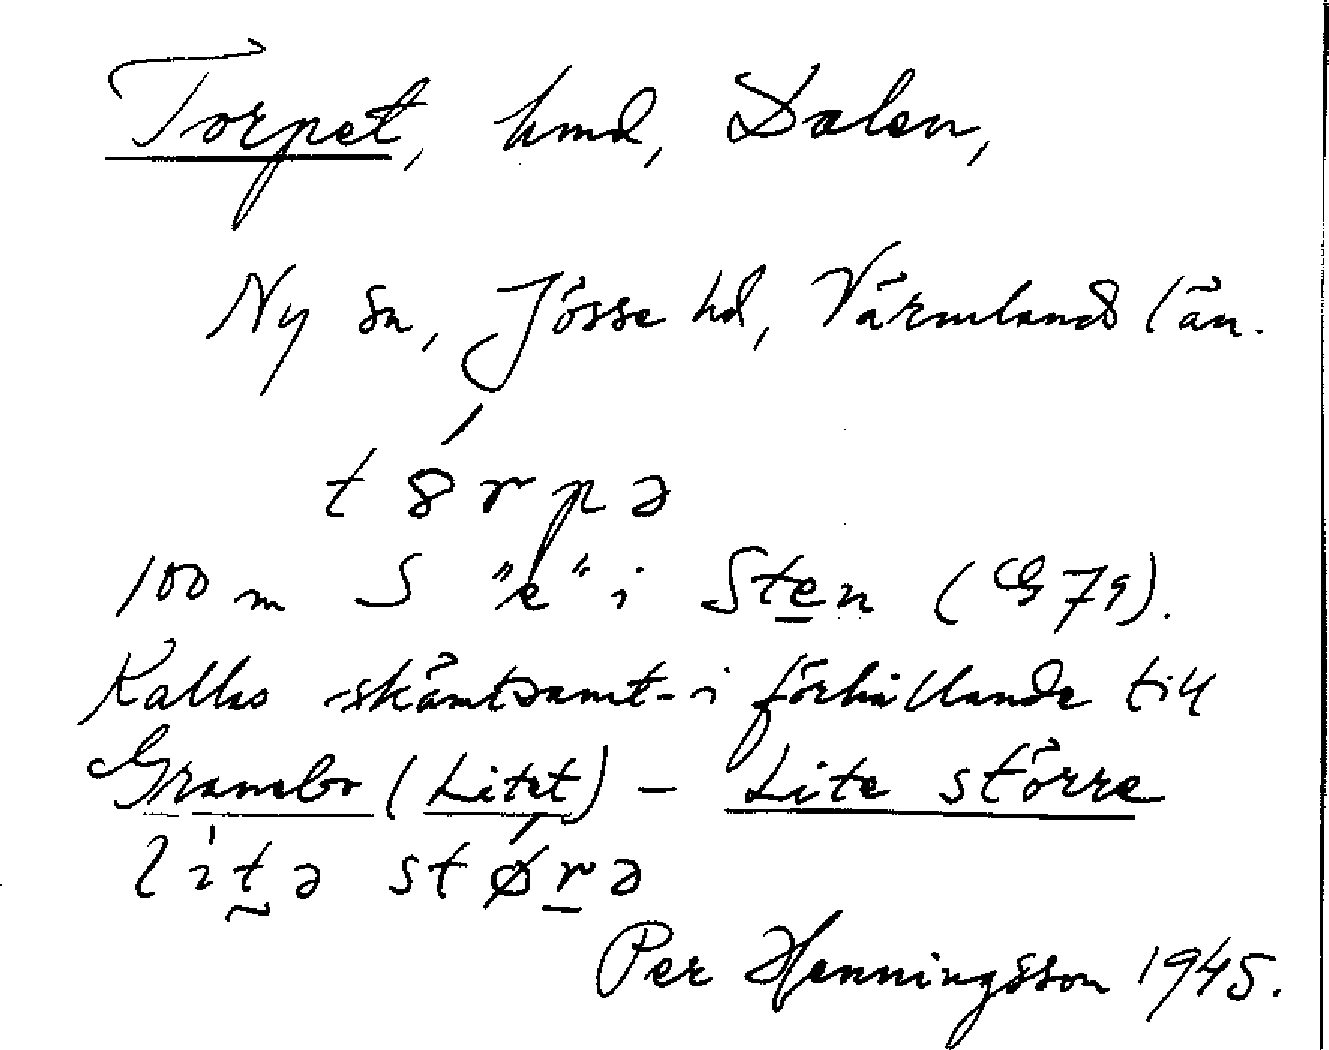 Torpet, hmd, Dalen,
Ny sn, Jösse hd, Värmlands län.
t8́rpə
100 m S "e" i Sten (G 79).
Kallas skämtsamt - i förhållande till
Granebo (Litet) - Lite större
litə størə
Per Henningsson 1945.